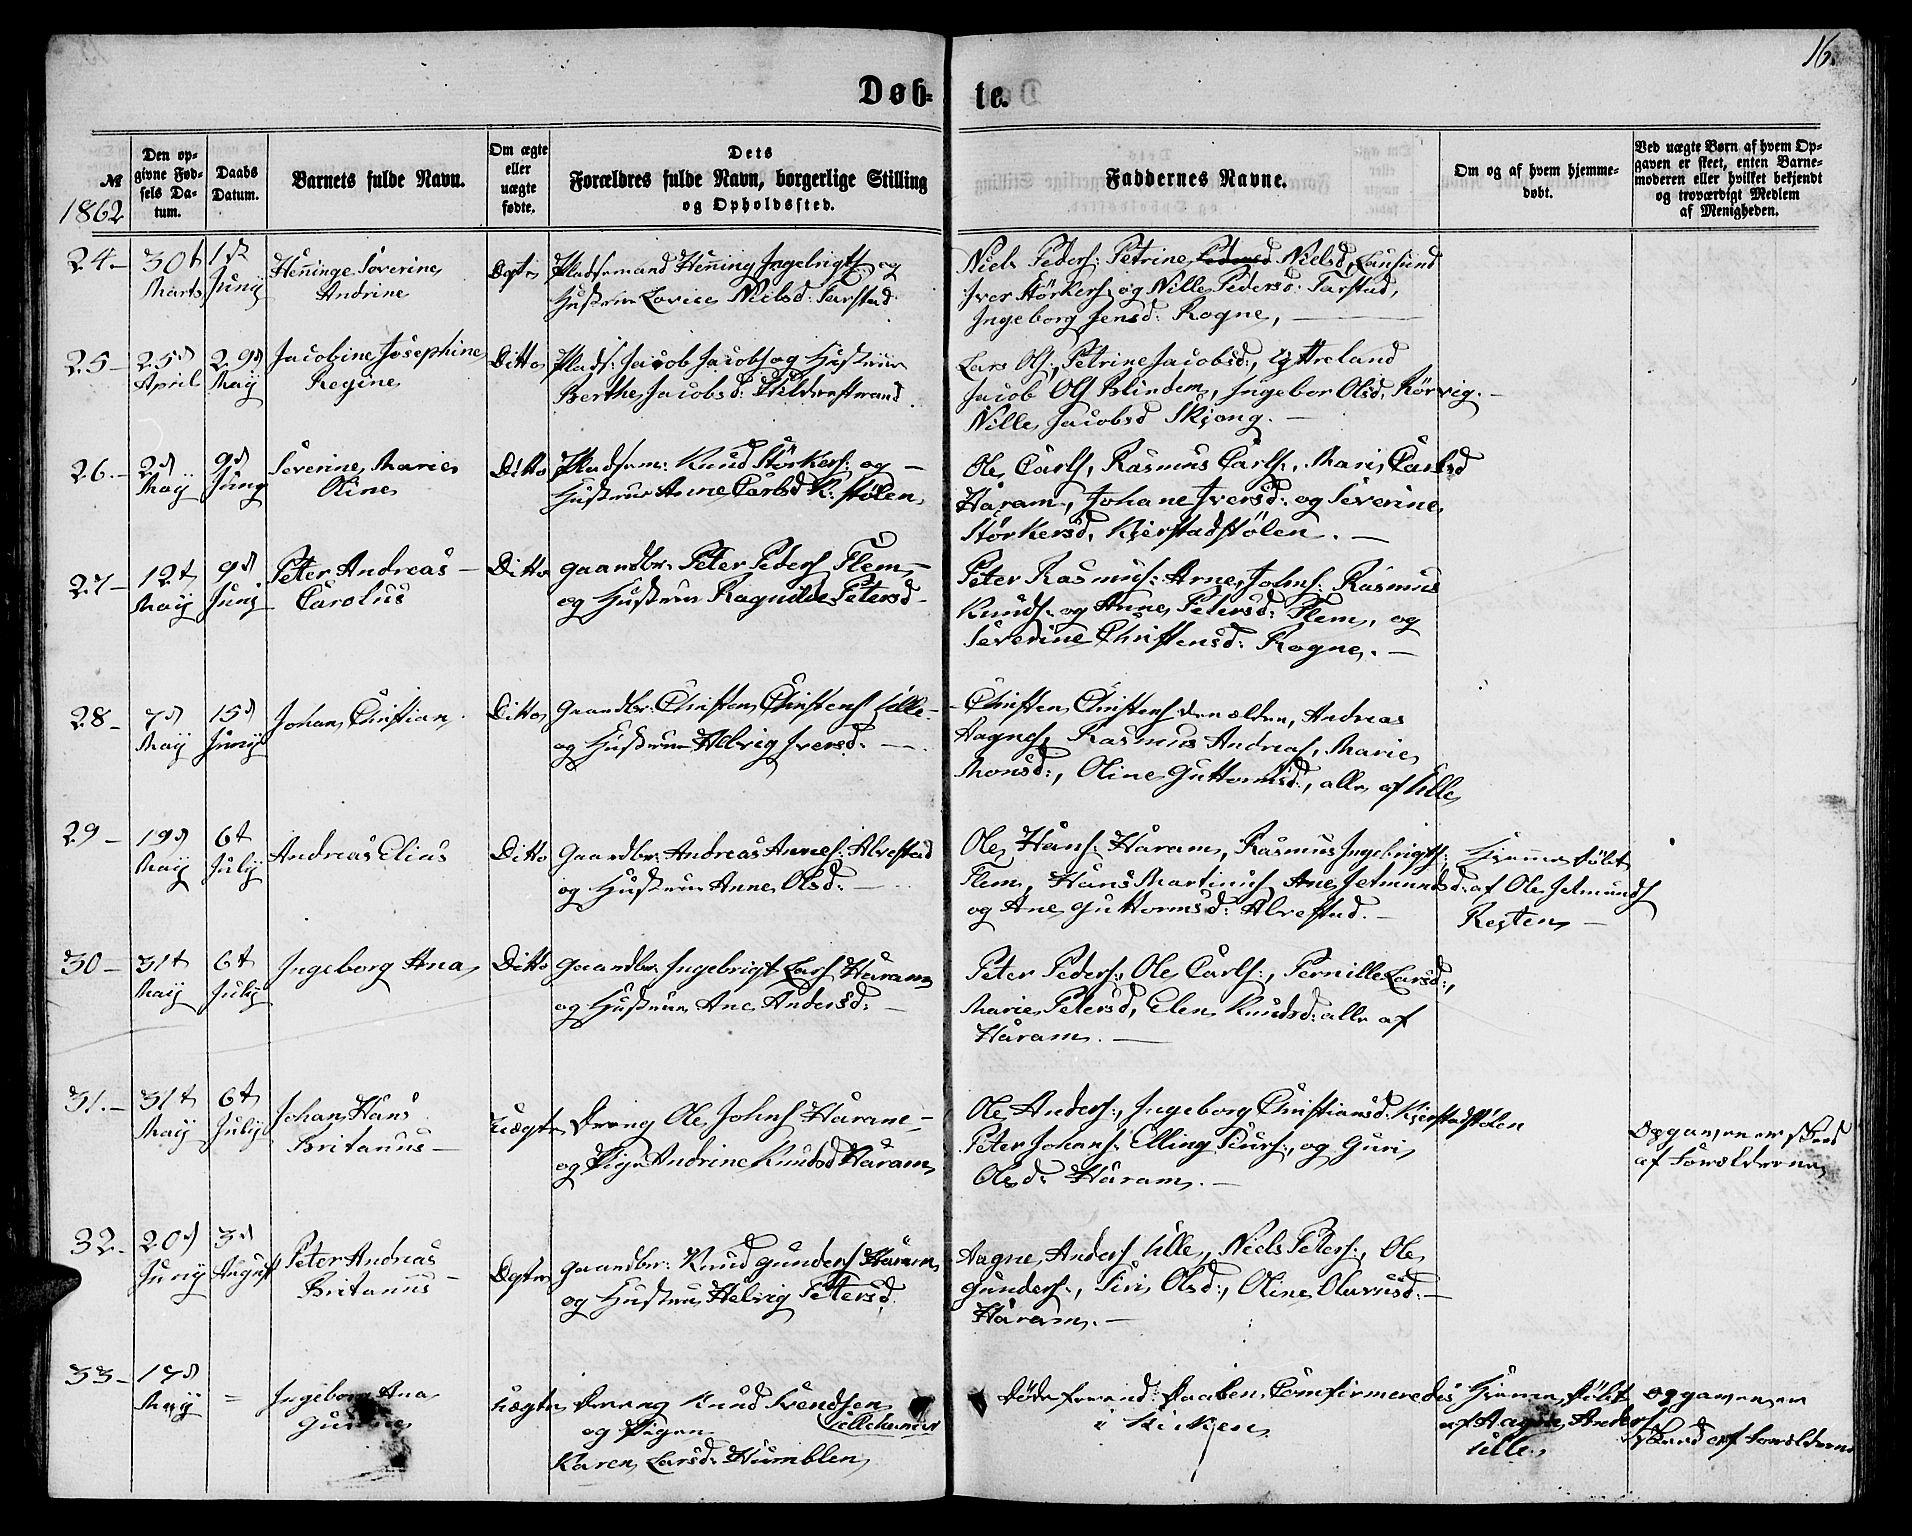 16.
Døb-
te.
№
1862
Den op-
givne Fød-
sels Da-
tum.
Daabs
Datum.
Barnets fulde Navn.
Om ægte
eller
uægte
fødte.
Dets
Forældres fulde Navn, borgerlige Stilling
og Opholdssted.
Faddernes Navne.
Om og af hvem hjemme-
døbt.
Ved uægte Børn af hvem Op-
gaven er skeet, enten Barne-
moderen eller hvilket bekjendt
og troværdigt Medlem
af Menigheden.
24.- 30t
Marts
1st
Junij
Henninge Severine
Andrine
Ægte
Pladsemand Hening Ingebrigts: og
Hustrue Lovise Nielsd: Tarstad.
Niels Peders: Petrine Pedersd Nielsd, Lausund
Iver Størkers: og Nille Pedersd: Tarstad,
Ingeborg Jensd: Rogne,
25- 25d
April
29d
May
Jacobine Josephine
Regine
Ditto
Plads: Jacob Jacobs og Hustrue
Berthe Jacobsd: Hildrestrand
Lars Ols, Petrine Jacobsd:, Ytreland
Jacob Ols Blindem, Ingebor Olsd, Rørvig.
Nille Jacobsd Skjong.
26.- 2d
May
9d
Junij
Severine Marie
Oline
Ditto
Pladsem: Knud Størkers: og
Hustrue Anne Carlsd K:stølen
Ole Carls, Rasmus Carls:, Mari Carlsd
Håram, Johane Iversd: og Severine
Størkersd, Kjerstadstølen.
27- 12t
May
9d
Junij
Peter Andreas
Carolus
Ditto
Gaardbr: Peter Peders Flem,
og Hustrue Ragnilde Petersd
Peter Rasmus: Arne Johns: Rasmus
Knuds: og Anne Petersd: Flem, og
Severine Christensd: Rogne.
28- 7d
May
15d
Junij
Johan Christian
Ditto
Gaardbr: Christen Christens Ulle
og Hustrue Helvig Iversd:
Christen Christens den ældre, Andreas
Aagnes, Rasmus Andreas, Marie
Monsd:, Oline Guttormsd:, alle af Ulle
29- 19d
May
6t
Julij
Andreas Elias
Ditto
Gaardbr: Andreas Annes: Alvestad
og Hustrue Anne Olsd:
Ole Hans: Håram, Rasmus Ingebrigts:
Flem, Hans Martinus, Ane Jetmundsd:
og Ane Guttormsd: Alvestad.
Hjemmedøbt
af Ole Jetmunds
Resten
30- 31t
May
6t
Julij
Ingeborg Ana
Ditto
Gaardbr: Ingebrigt Lars Håram
og Hustrue Ane Andersd:
Peter Peders:, Ole Carls:, Pernille Larsd:,
Marie Petersd, Elen Knudsd: alle af
Håram.
31.- 31t
May
6t
Julij
Johan Hans
Britanus
Uægte
Dreng Ole Johns Håram
og Pige Andrine Knudsd Håram
Ole Anders:, Ingeborg Christiansd: Kjerstadstølen
Peter Johans: Elling Siurs:, og Guri
Olsd: Håram.
Opgaven er skeed
af Forældrene
32. 20d
Junij
3d
August
Peter Andreas
Britanus
Ægte
Gaardbr: Knud Gunders Håram
og Hustrue Helvig Petersd.
Aagne Anders Ulle, Niels Peters:, Ole
Gunders:, Siri Olsd:, Oline Olausd:
Håram.
33- 17d
May
Ingeborg Ana
Uægte
Dreng Knud Svendsen
og Pigen
Lillehammer
Karen Larsd: Humblen
Døde forend: Daaben Comfirmeredes
i Kirken
Hjemmedøbt
af Aagne Anders
Ulle
Opgaven er
skeed af Forældrene